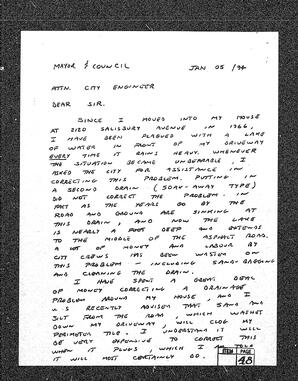 MAYOR & COUNCIL JAN 05 /94
ATTN. CITY ENGINEER
DEAR SIR.
SINCE I MOVED INTO MY HOUSE
AT 2120 SALISBURY AVENUE IN 1966,
I HAVE BEEN PLAGUED WITH A LAKE
OF WATER IN FRONT OF MY DRIVEWAY
EVERY TIME IT RAINS HEAVY. WHENEVER
THE SITUATION BECAME UNBEARABLE, I
ASKED THE CITY FOR ASSISTANCE IN
CORRECTING THIS PROBLEM. PUTTING IN
A SECOND DRAIN (SOAK-AWAY TYPE)
DID NOT CORRECT THE PROBLEM. IN
FACT AS THE YEARS GO BY THE
ROAD AND GROUND ARE SINKING AT
THIS DRAIN, AND NOW THE LAKE
IS NEARLY A FOOT DEEP AND EXTENDS
TO THE MIDDLE OF THE ASPHALT ROAD.
A LOT OF MONEY AND LABOUR BY
CITY CREWS HAS BEEN WASTED ON
THIS PROBLEM - INCLUDING SAND-BAGGING
AND CLEANING THE DRAIN.
I HAVE SPENT A GREAT DEAL
OF MONEY CORRECTING A DRAINAGE
PROBLEM AROUND MY HOUSE AND I
WAS RECENTLY ADVISED THAT SAND AND
SILT FROM THE ROAD, WHICH WASHES
DOWN MY DRIVEWAY, WILL CLOG MY
PERIMETER TILE. I UNDERSTAND IT WILL
BE VERY EXPENSIVE TO CORRECT THIS
WHEN IT PLUGS, WHICH I AM TOLD
IT WILL MOST CERTAINLY DO.
ITEM PAGE
48